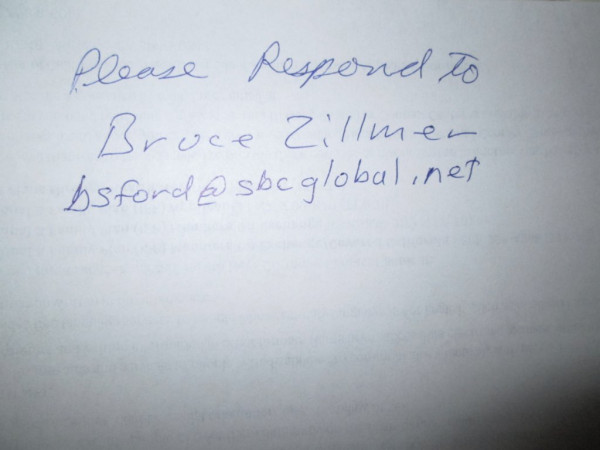 Please Respond to
Bruce Zillmer
bsford@sbcglobal.net